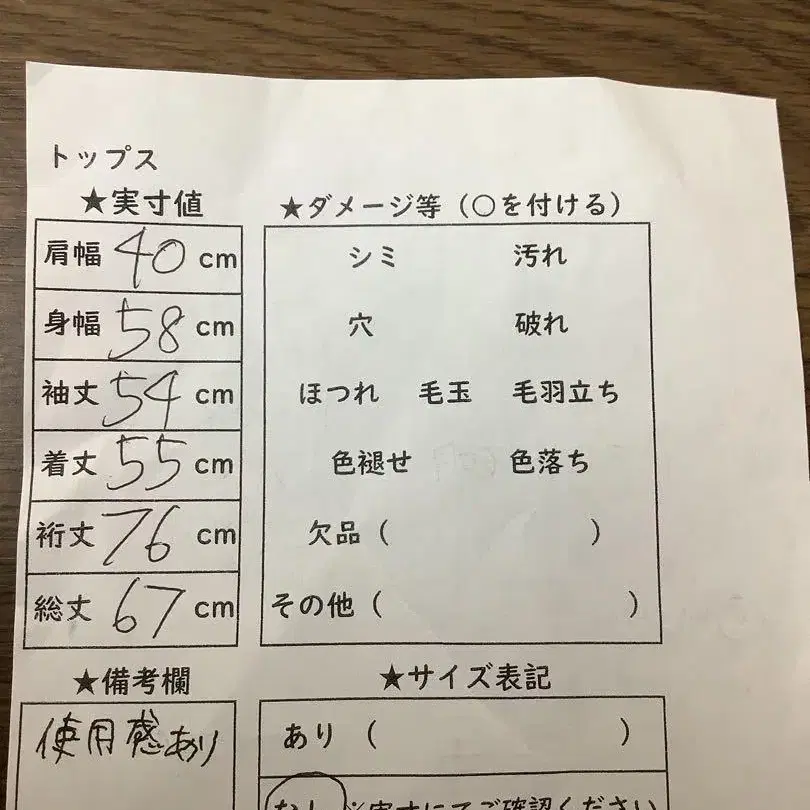 トップス
★実寸値
肩幅 40 cm
身幅 58 cm
袖丈 54 cm
着丈 55 cm
裄丈 76 cm
総丈 67 cm
★ダメージ等（○を付ける）
シミ 汚れ
穴 破れ
ほつれ 毛玉 毛羽立ち
色褪せ 色落ち
欠品（ ）
その他（ ）
★備考欄
使用感あり
★サイズ表記
あり（ ）
なし ※実寸にてご確認ください